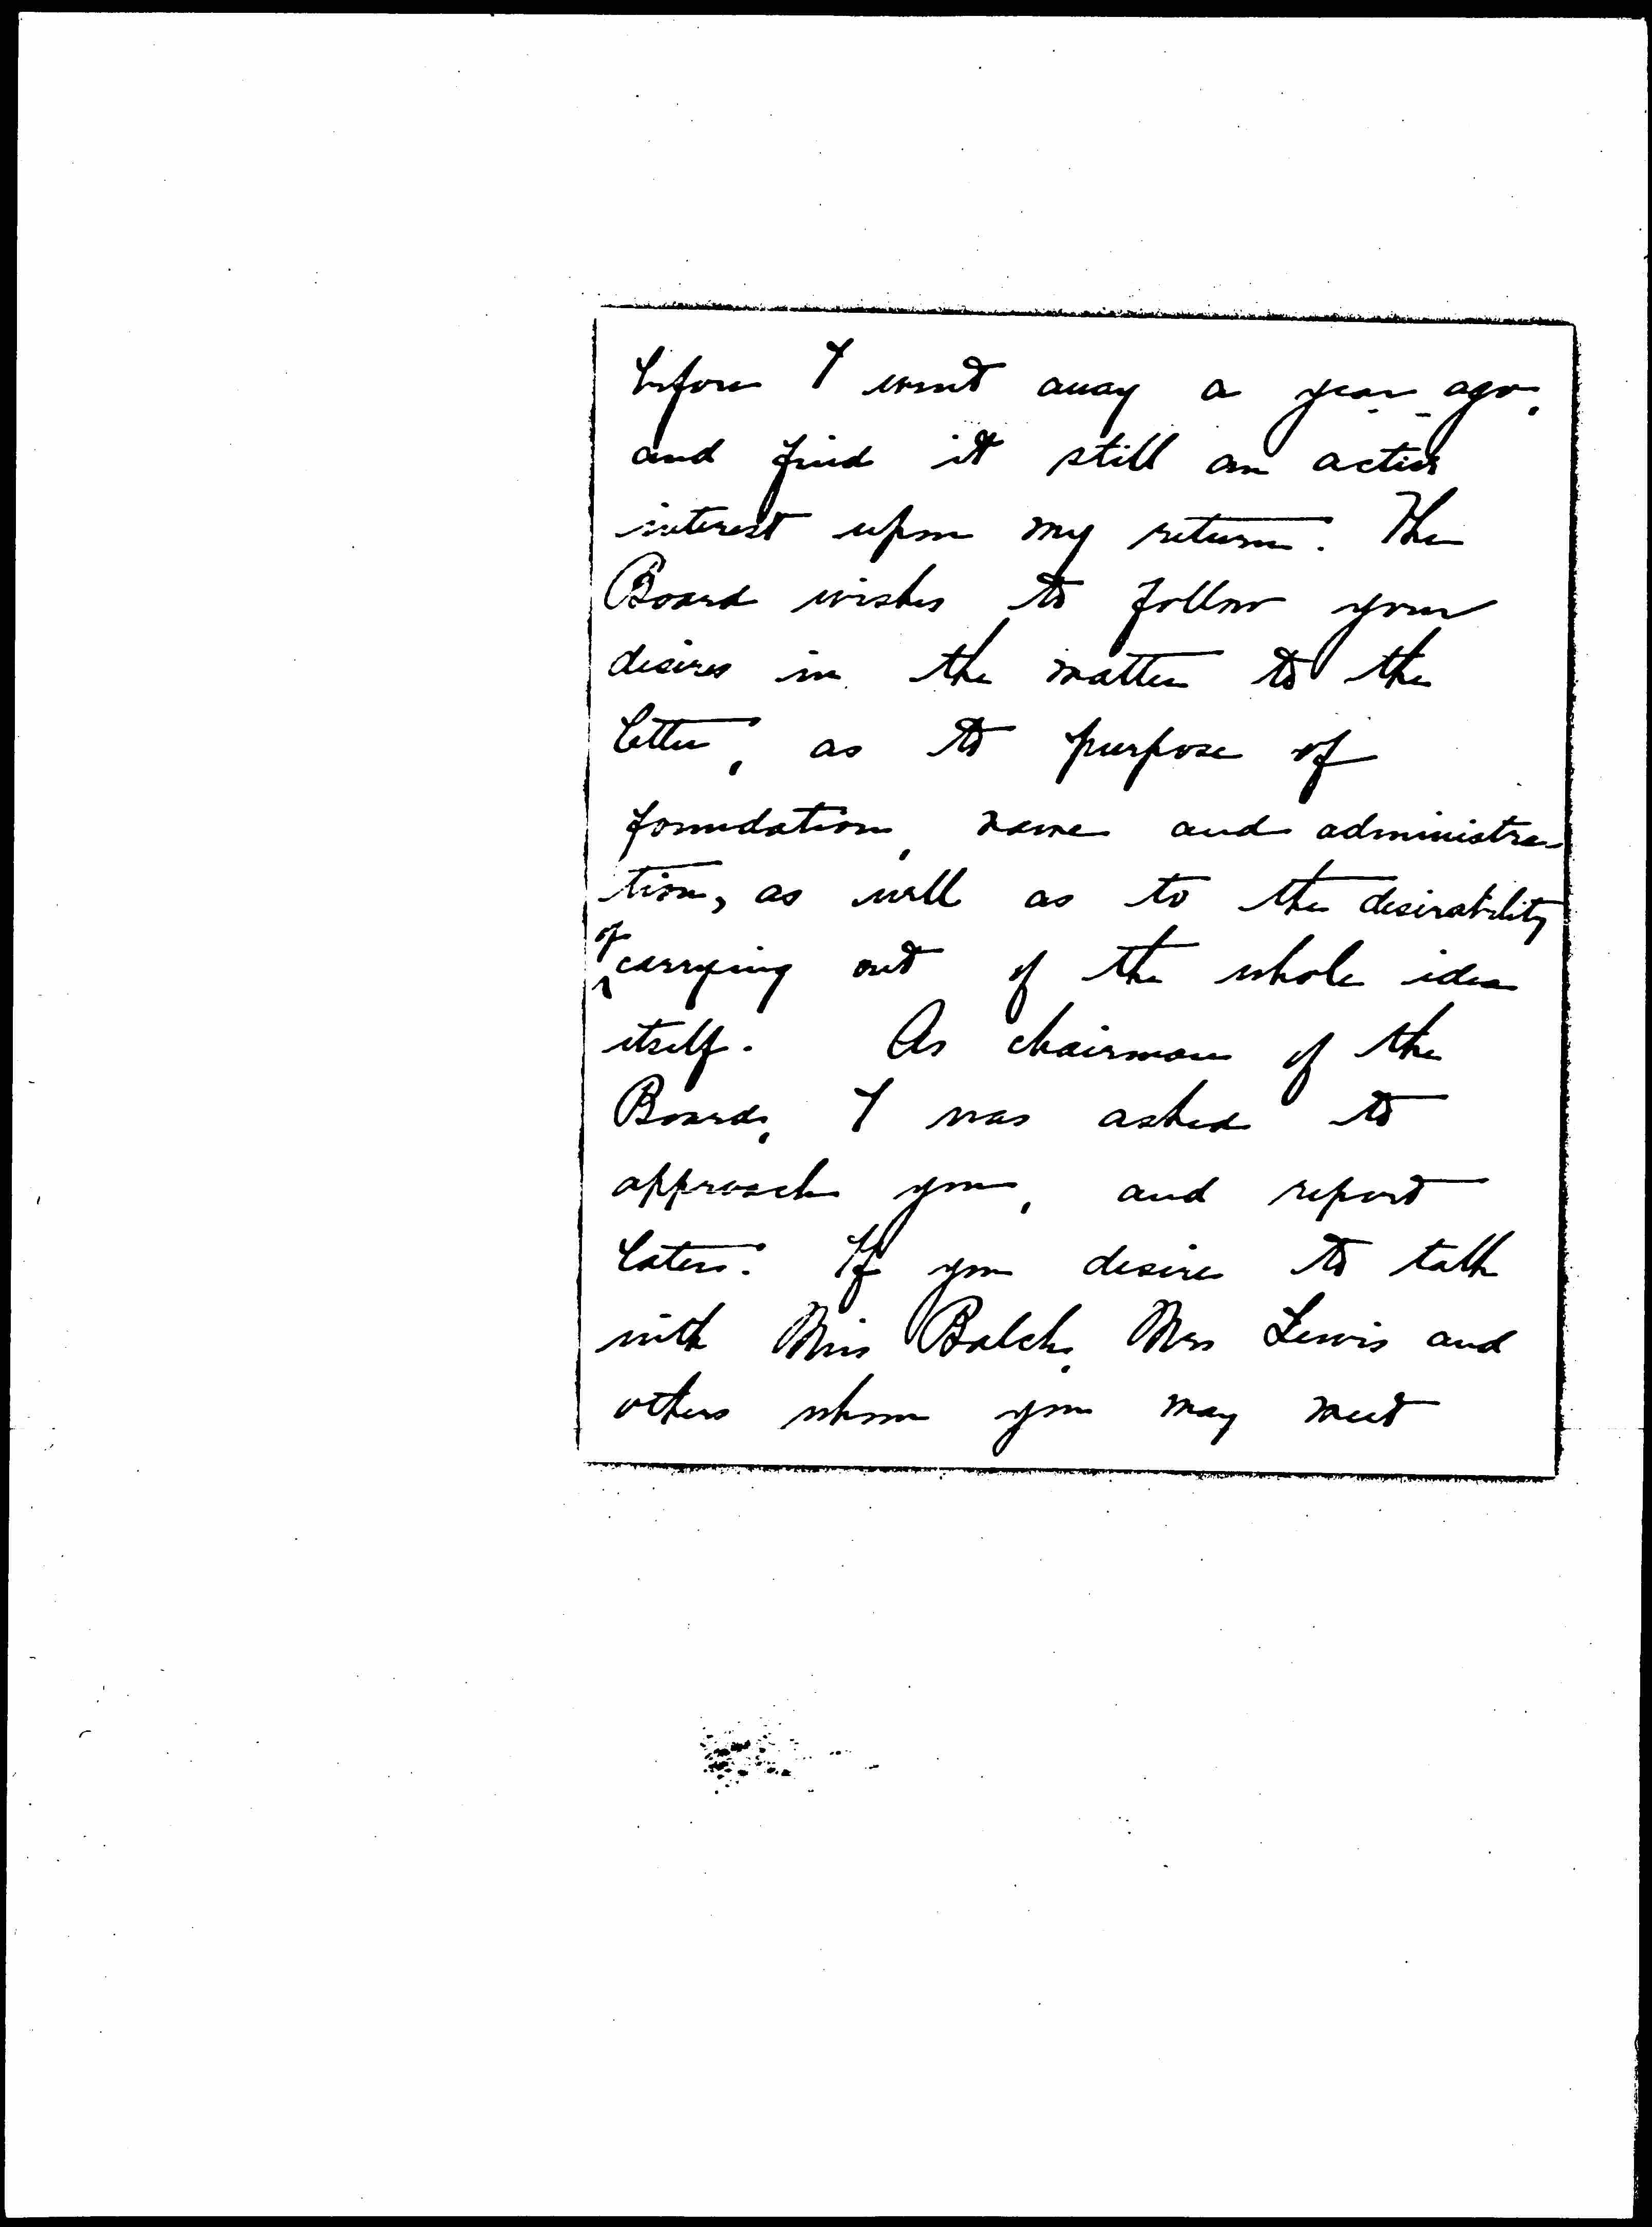 before I went away a year ago,
and find it still an active
interest upon my return. The
Board wishes to follow your
desires in the matter to the
letter, as to purpose of
foundation, name and administra-
tion, as well as to the desirability
of carrying out of the whole idea
itself. As chairman of the
Board, I was asked to
approach you, and report
later. If you desire to talk
with Miss Balch, Mrs Lewis and
others whom you may meet